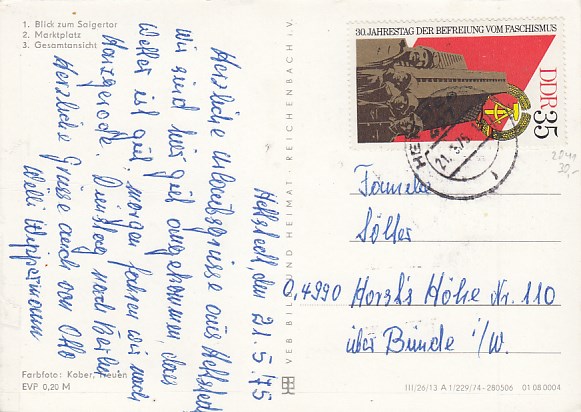 1. Blick zum Saigertor
2. Marktplatz
3. Gesamtansicht
Hettstedt, den 21.5.75
Herzliche Urlaubsgrüsse aus Hettstedt
wir sind hier gut angekommen, das
Wetter ist gut, morgen fahren wir nach
Harzgerode. Dienstag nach Berlin
Herzliche Grüsse auch von Otto
Willi Wippermann
Farbfoto: Kober, Treuen
EVP 0,20 M
VEB BILD UND HEIMAT · REICHENBACH i. V.
III/26/13 A 1/229/74-280506 01 08 0004
30. JAHRESTAG DER BEFREIUNG VOM FASCHISMUS
DDR 35
21.5.75
30,-
Familie
Sölter
0,4990 Horst's Höhe Nr. 110
über Bünde i/W.